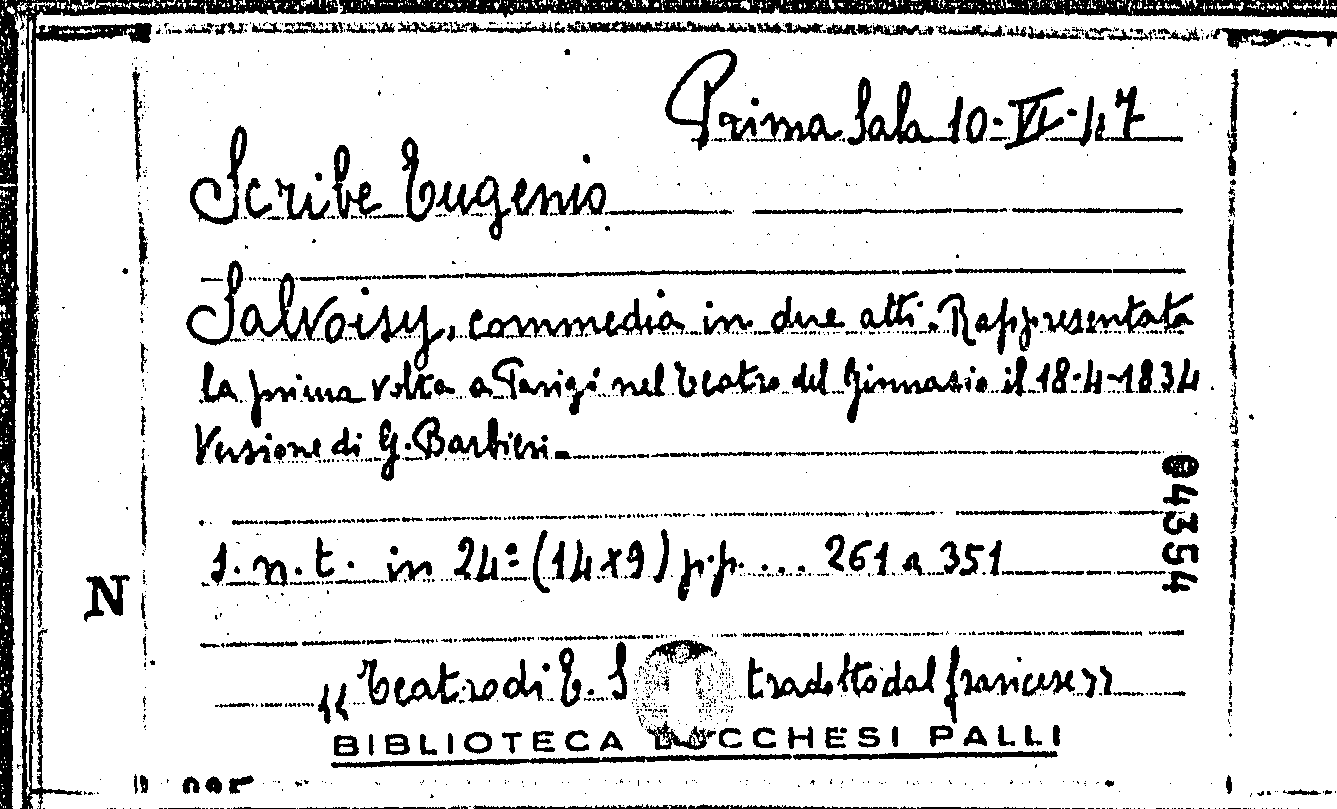 Prima Sala 10-VI-47
Scribe Eugenio
Salvoisy, commedia in due atti. Rappresentata
la prima volta a Parigi nel teatro del Ginnasio il 18-4-1834
Versione di G. Barbieri.
04354
s. n. t. in 24º (14x9) p.p. ... 261 a 351
N
"Teatro di E. S tradotto dal francese"
BIBLIOTECA LUCCHESI PALLI